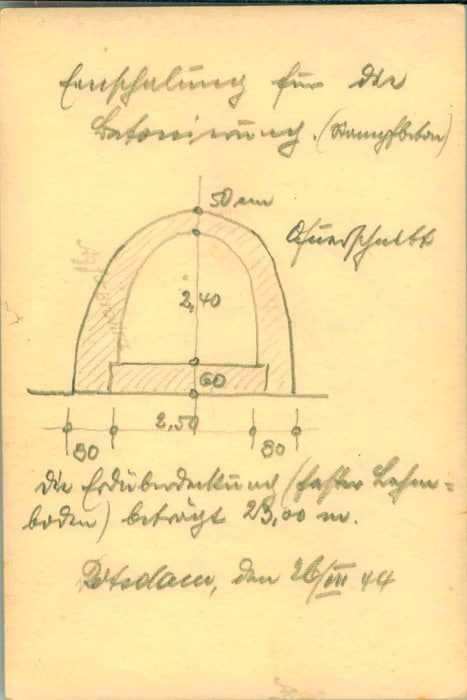 Einschalung für die
Betonierung. (Stampfbeton)
50 cm
Querschnitt
2,40
60
2,50
80
80
die Erdüberdeckung (fester Lehm=
boden) beträgt 23,00 m.
Potsdam, den 26/VII 44